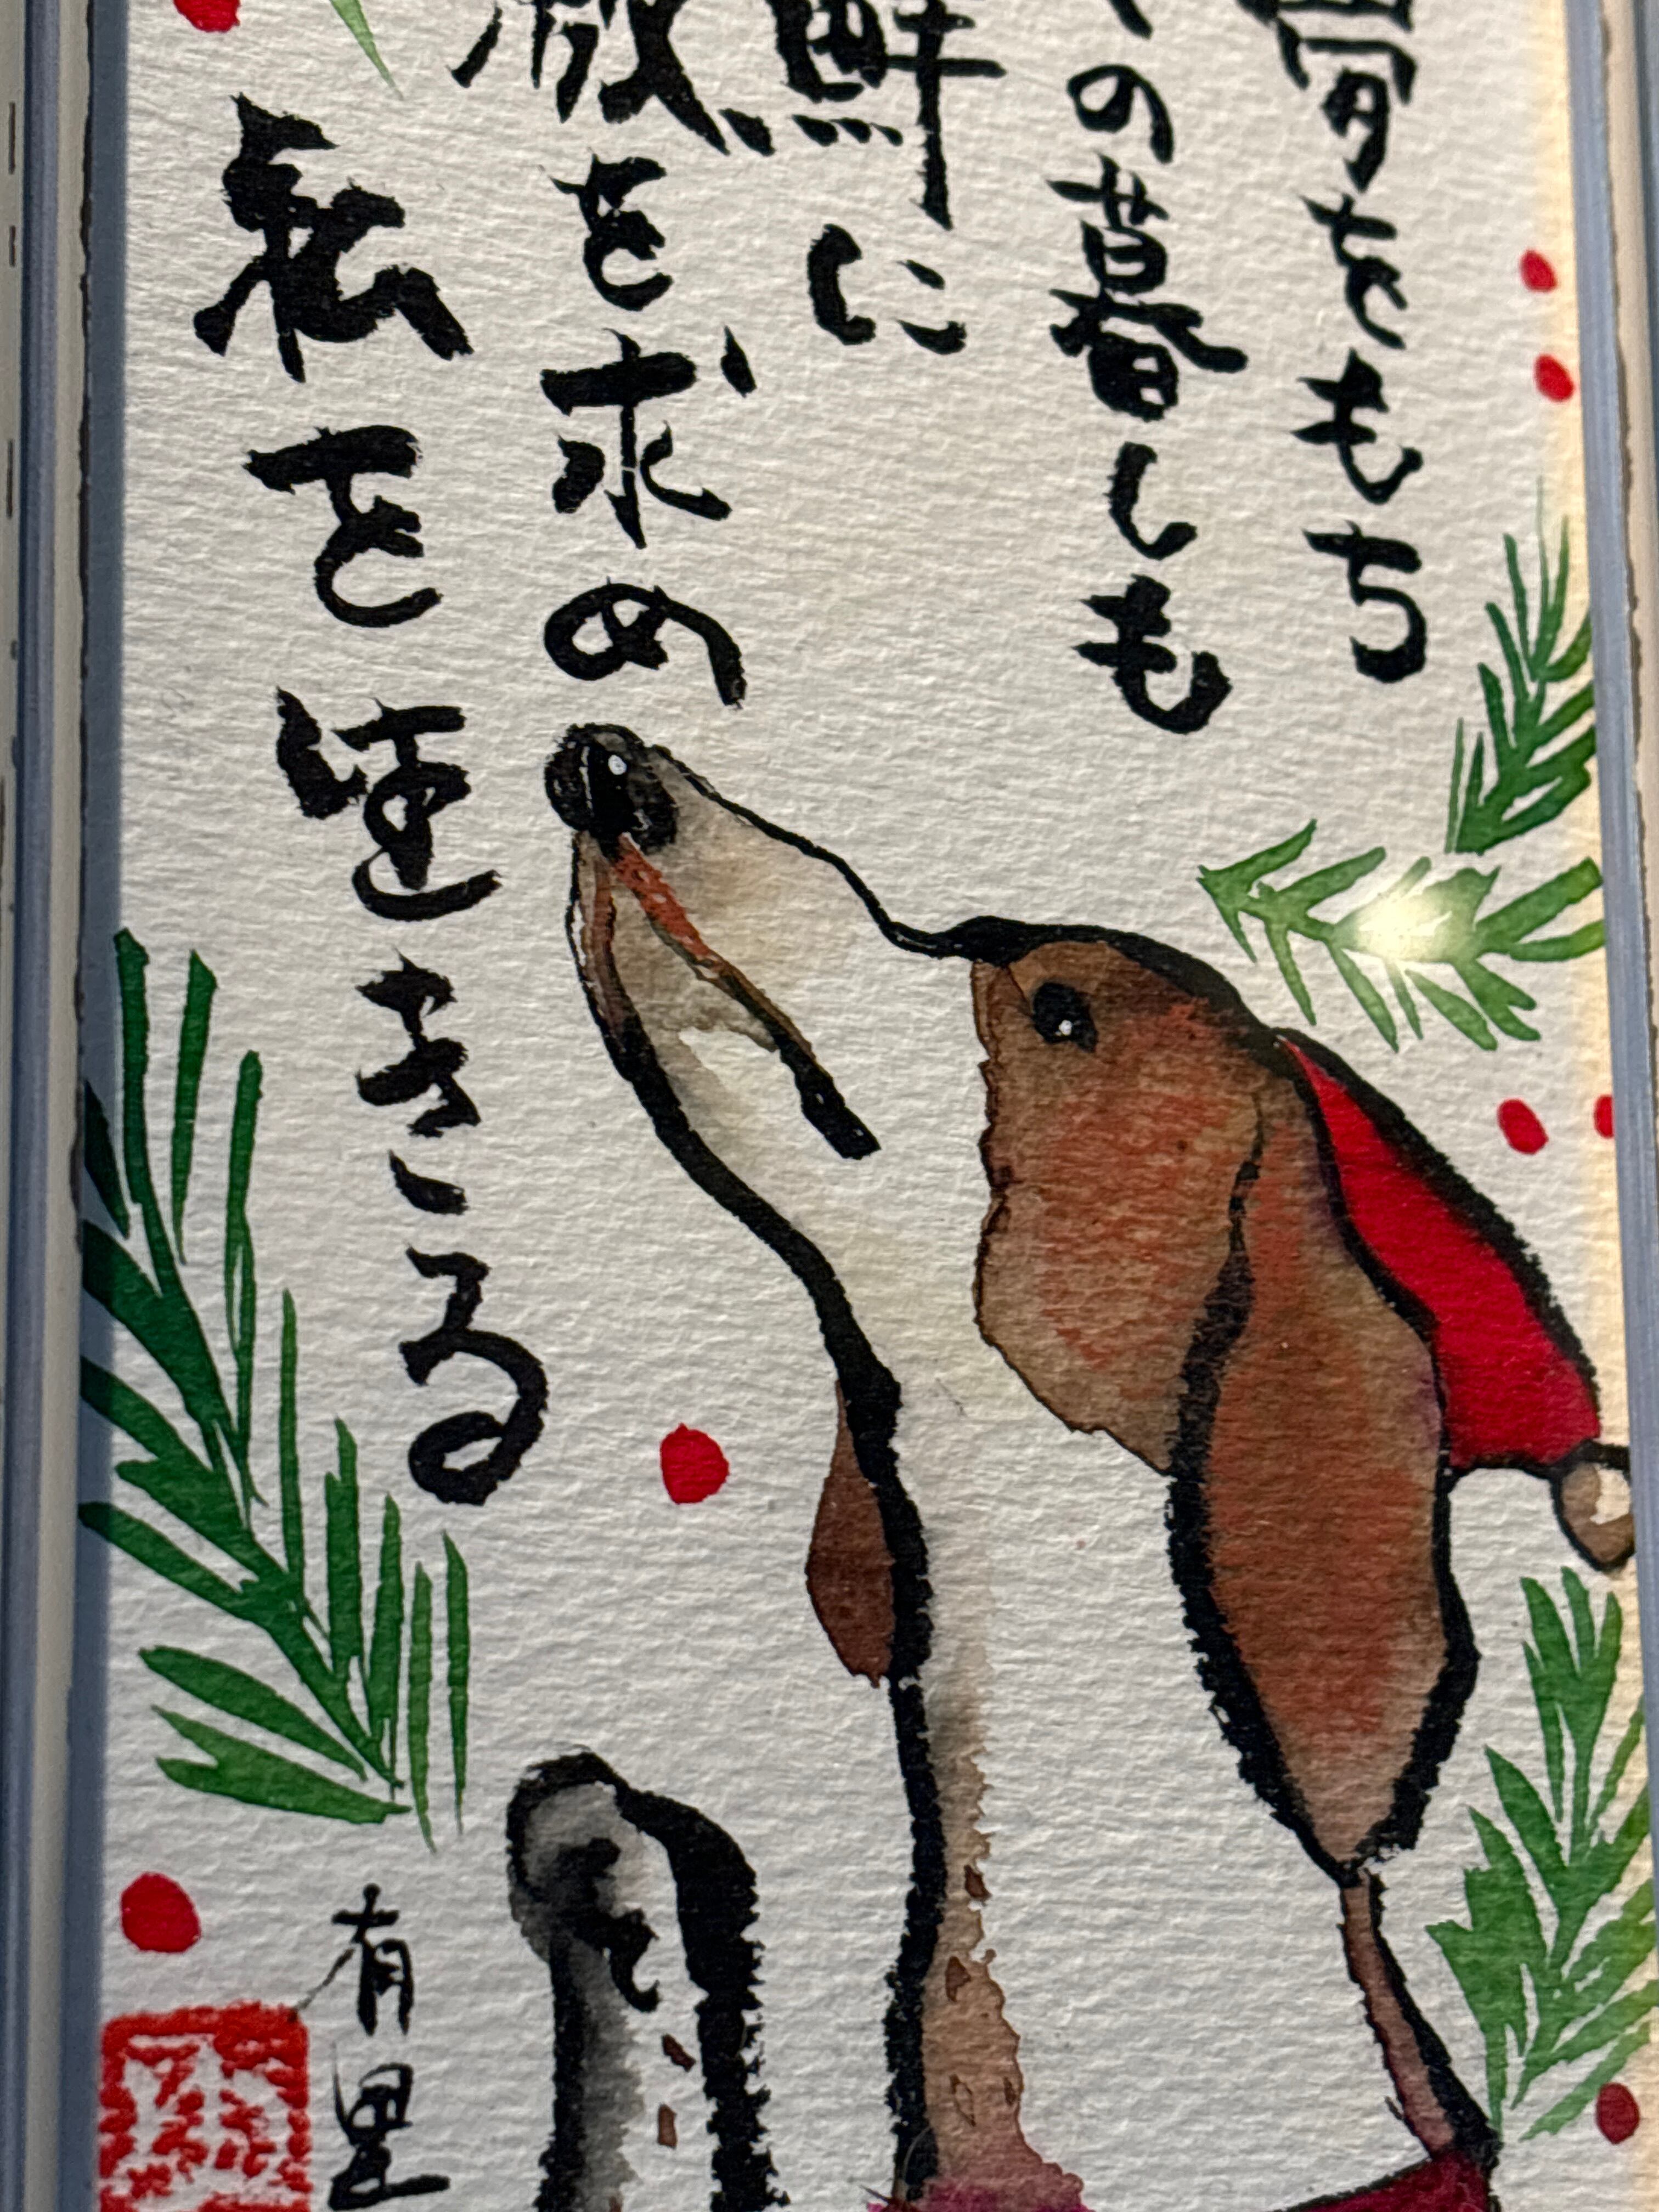 をもち
の暮しも
鮮に
激を求め
私を生きる
有里